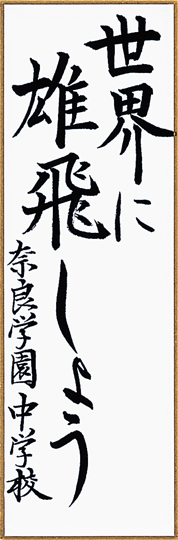 世界に
雄飛しよう
奈良学園中学校